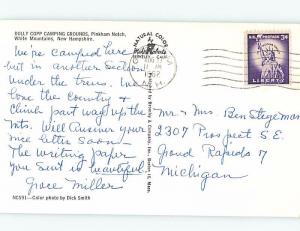 DOLLY COPP CAMPING GROUNDS, Pinkham Notch,
White Mountains, New Hampshire.
We're camped here
but in another section
under the trees. We
love the country &
climb part way up the
mts. Will answer your
nice letter soon.
The writing paper
you sent is beautiful.
Grace Miller
NC591—Color photo by Dick Smith
NATURAL COLOR
U.S. POSTAGE 3¢
LIBERTY
Mr & Mrs Ben Stegeman
2307 Prospect S.E.
Grand Rapids 7
Michigan